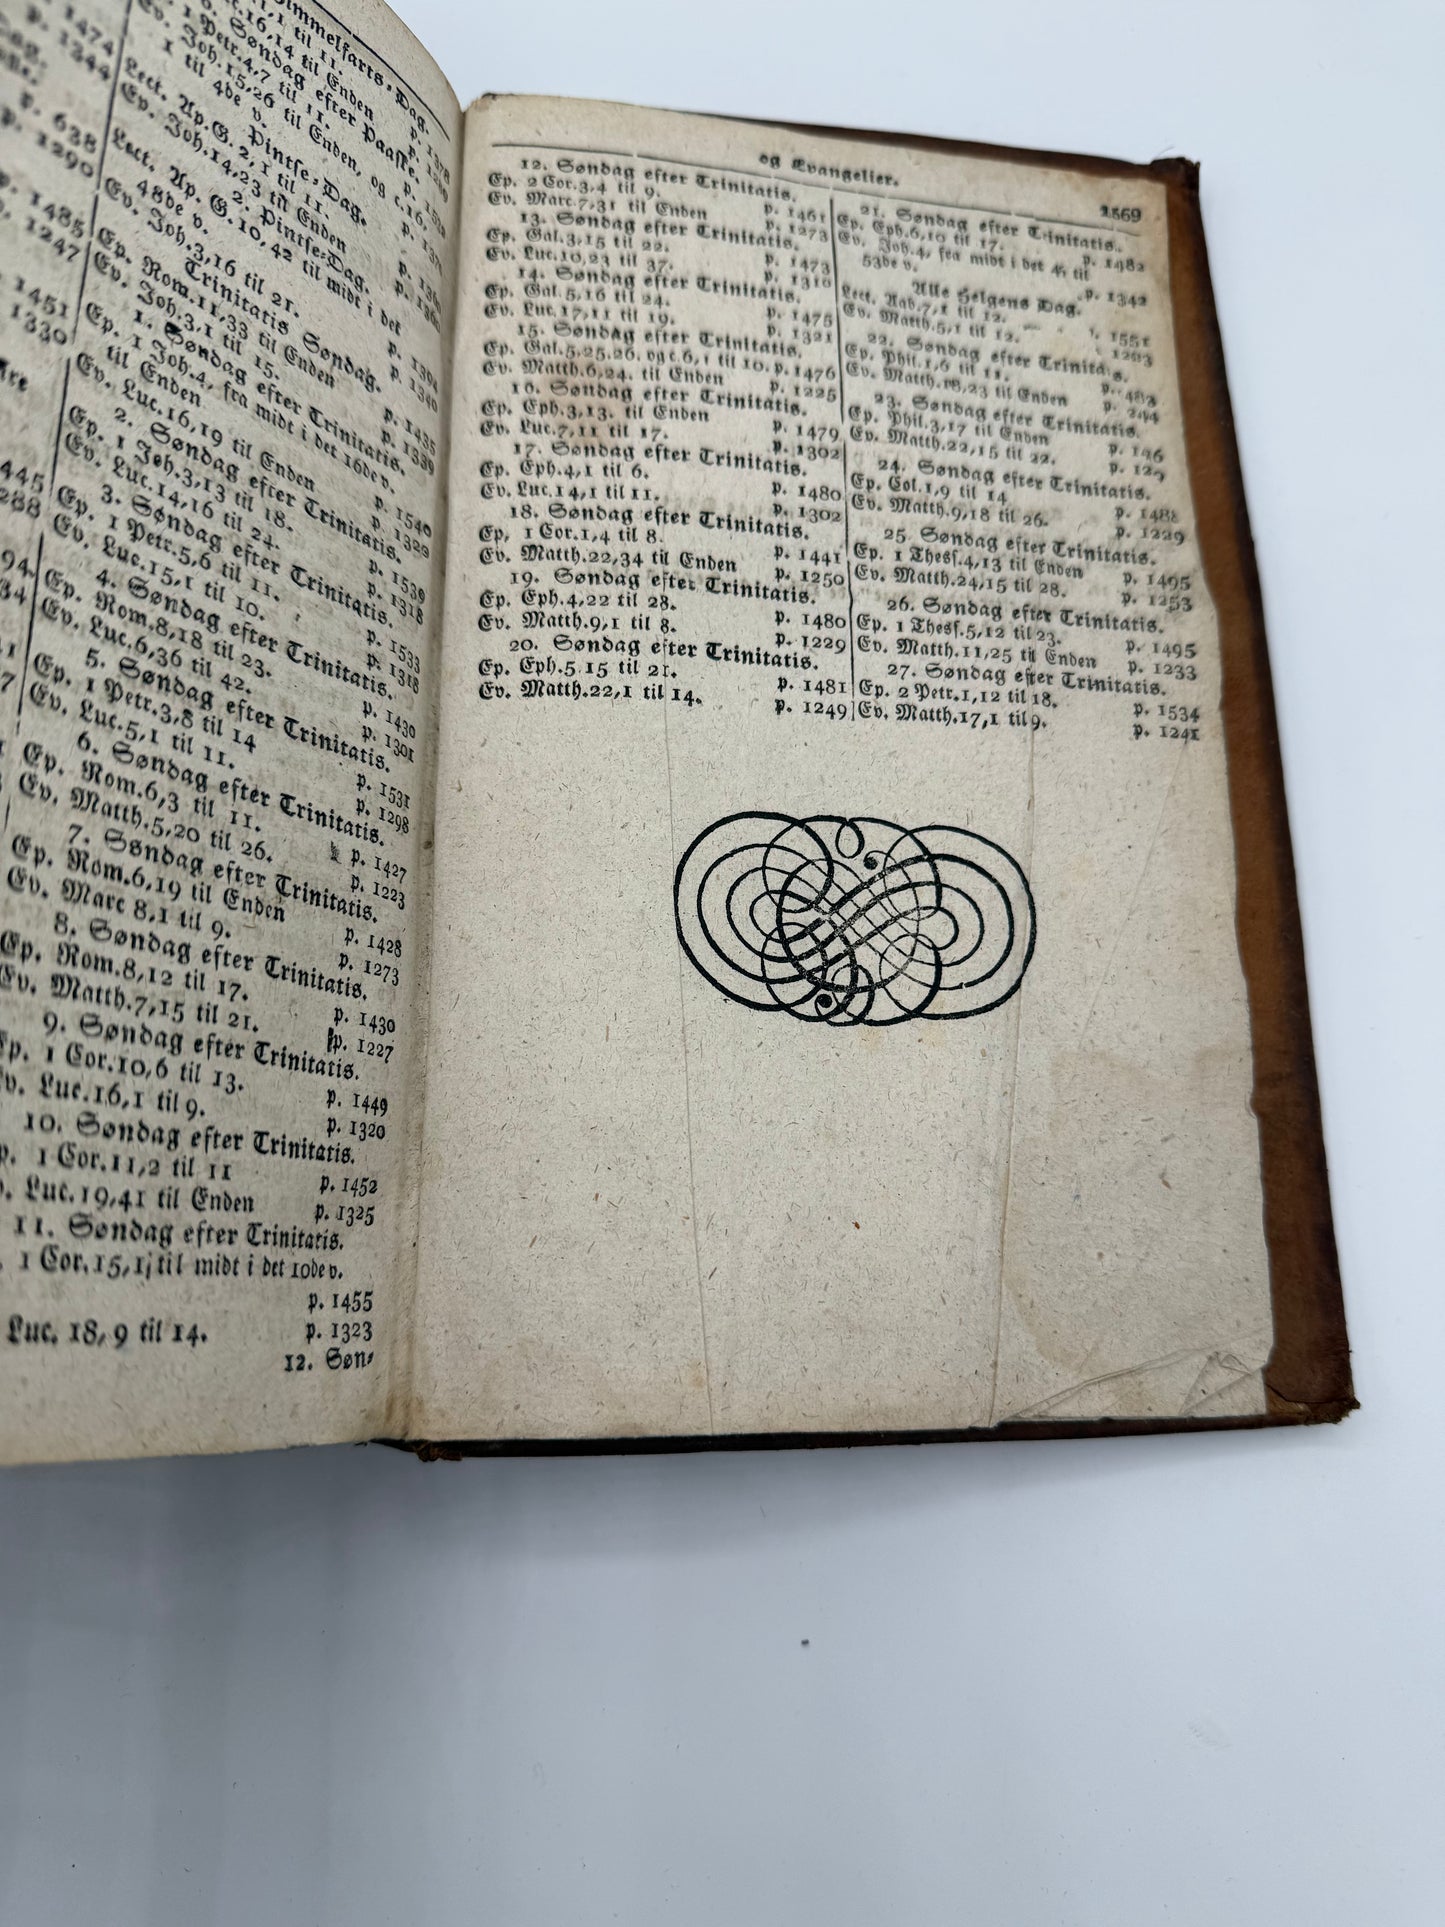 1474
p. 1244
p. 638
p. 1290
1485
1247
1451
1330
445
288
94
34
immelfarts-Dag.
til 11.
16,14 til Enden p. 1378
Søndag efter Paaske.
1 Petr.4,7 til 11.
Joh.15,26 til Enden, og c.16,
1 til 4de v.
Pintse-Dag.
Lect. Ap.G.2,1 til 11.
Ev. Joh.14,23 til Enden
2. Pintse-Dag.
Lect. Ap. G. 10,42 til midt i det
48de v.
Ev. Joh.3,16 til 21. p. 1394
Trinitatis Søndag. p. 1340
Ep. Rom.11,33 til Enden p. 1435
Ev. Joh.3,1 til 15. p. 1339
1. Søndag efter Trinitatis.
Ep. 1 Joh.4, fra midt i det 16de v.
til Enden p. 1540
Ev. Luc.16,19 til Enden p. 1320
2. Søndag efter Trinitatis.
Ep. 1 Joh.3,13 til 18. p. 1539
Ev. Luc.14,16 til 24. p. 1318
3. Søndag efter Trinitatis.
Ep. 1 Petr.5,6 til 11. p. 1533
Ev. Luc.15,1 til 10. p. 1318
4. Søndag efter Trinitatis.
Ep. Rom.8,18 til 23. p. 1430
Ev. Luc.6,36 til 42. p. 1301
5. Søndag efter Trinitatis.
Ep. 1 Petr.3,8 til 14 p. 1531
Ev. Luc.5,1 til 11. p. 1298
6. Søndag efter Trinitatis.
Ep. Rom.6,3 til 11. p. 1427
Ev. Matth.5,20 til 26. p. 1223
7. Søndag efter Trinitatis.
Ep. Rom.6,19 til Enden p. 1428
Ev. Marc 8,1 til 9. p. 1273
8. Søndag efter Trinitatis.
Ep. Rom.8,12 til 17. p. 1430
Ev. Matth.7,15 til 21. p. 1227
9. Søndag efter Trinitatis.
Ep. 1 Cor.10,6 til 13. p. 1449
Ev. Luc.16,1 til 9. p. 1320
10. Søndag efter Trinitatis.
p. 1 Cor.11,2 til 11 p. 1452
Luc.19,41 til Enden p. 1325
11. Søndag efter Trinitatis.
1 Cor.15,1 til midt i det 10de v.
p. 1455
Luc. 18,9 til 14. p. 1323
12. Søn-
og Evangelier. 1569
12. Søndag efter Trinitatis.
Ep. 2 Cor.3,4 til 9. p. 1461
Ev. Marc.7,31 til Enden p. 1273
13. Søndag efter Trinitatis.
Ep. Gal.3,15 til 22. p. 1473
Ev. Luc.10,23 til 37. p. 1310
14. Søndag efter Trinitatis.
Ep. Gal.5,16 til 24. p. 1475
Ev. Luc.17,11 til 19. p. 1321
15. Søndag efter Trinitatis.
Ep. Gal.5,25.26. og c.6,1 til 10. p. 1476
Ev. Matth.6,24. til Enden p. 1225
16. Søndag efter Trinitatis.
Ep. Eph.3,13. til Enden p. 1479
Ev. Luc.7,11 til 17. p. 1302
17. Søndag efter Trinitatis.
Ep. Eph.4,1 til 6. p. 1480
Ev. Luc.14,1 til 11. p. 1302
18. Søndag efter Trinitatis.
Ep. 1 Cor.1,4 til 8. p. 1441
Ev. Matth.22,34 til Enden p. 1250
19. Søndag efter Trinitatis.
Ep. Eph.4,22 til 28. p. 1480
Ev. Matth.9,1 til 8. p. 1229
20. Søndag efter Trinitatis.
Ep. Eph.5 15 til 21. p. 1481
Ev. Matth.22,1 til 14. p. 1249
21. Søndag efter Trinitatis.
Ep. Eph.6,10 til 17. p. 1482
Ev. Joh.4, fra midt i det 47 til
53de v. p. 1342
Alle Helgens Dag.
Lect. Aab.7,1 til 12. 1551
Ev. Matth.5,1 til 12. 1203
22. Søndag efter Trinitatis.
Ep. Phil.1,6 til 11.
Ev. Matth.18,23 til Enden
23. Søndag efter Trinitatis.
Ep. Phil.3,17 til Enden
Ev. Matth.22,15 til 22.
24. Søndag efter Trinitatis.
Ep. Col.1,9 til 14 p. 1488
Ev. Matth.9,18 til 26. p. 1229
25. Søndag efter Trinitatis.
Ep. 1 Thess.4,13 til Enden p. 1495
Ev. Matth.24,15 til 28. p. 1253
26. Søndag efter Trinitatis.
Ep. 1 Thess.5,12 til 23. p. 1495
Ev. Matth.11,25 til Enden p. 1233
27. Søndag efter Trinitatis.
Ep. 2 Petr.1,12 til 18. p. 1534
Ev. Matth.17,1 til 9. p. 1241